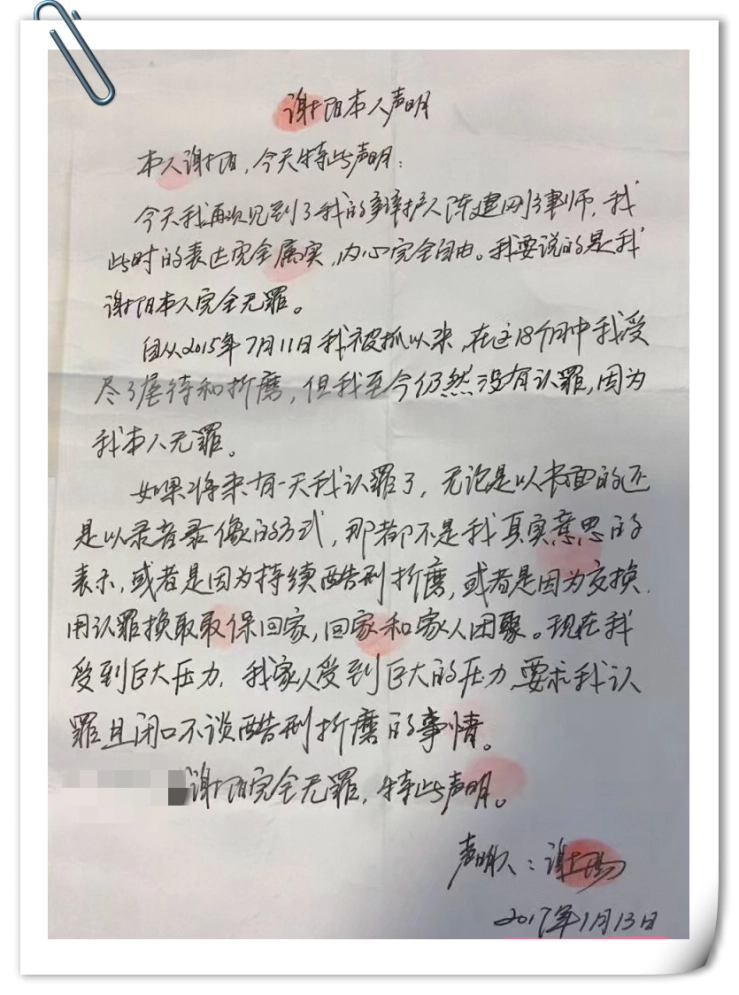 谢阳本人声明
本人谢阳,今天特此声明:
今天我再次见到了我的辩护人陈建刚律师,我
此时的表达完全属实,内心完全自由。我要说的是我
谢阳本人完全无罪。
自从2015年7月11日我被抓以来,在这18个月中我受
尽了虐待和折磨,但我至今仍然没有认罪,因为
我本人无罪。
如果将来有一天我认罪了,无论是以书面的还
是以录音录像的方式,那都不是我真实意思的
表示,或者是因为持续酷刑折磨,或者是因为交换,
用认罪换取取保回家,回家和家人团聚。现在我
受到巨大压力,我家人受到巨大的压力,要求我认
罪且闭口不谈酷刑折磨的事情。
谢阳完全无罪,特此声明。
声明人:谢阳
2017年1月13日